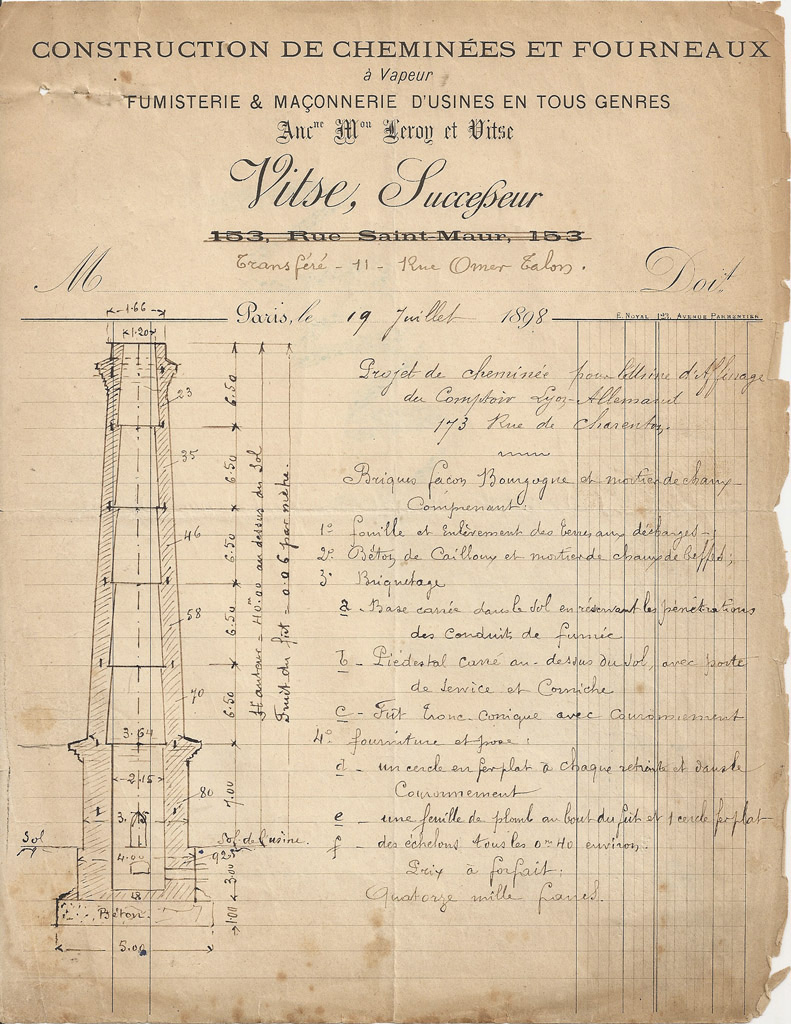 CONSTRUCTION DE CHEMINÉES ET FOURNEAUX
à Vapeur
FUMISTERIE & MAÇONNERIE D'USINES EN TOUS GENRES
Anc^ne M^on Leroy et Vitse
Vitse, Successeur
153, Rue Saint-Maur, 153
Transféré - 11 - Rue Omer Talon.
M Doit
Paris, le 19 Juillet 1898
E. NOYAL 123, AVENUE PARMENTIER
Projet de cheminée pour l'Usine d'Affinage
du Comptoir Lyon-Allemand
173 Rue de Charenton.
Briques façon Bourgogne et mortier de chaux
Comprenant:
1° fouille et Enlèvement des terres aux décharges;
2° Béton de Cailloux et mortier de chaux de Beffes;
3° Briquetage
a - Base carrée dans le sol en réservant les pénétrations
des Conduits de fumée
b - Piédestal carré au-dessus du sol, avec porte
de service et Corniche
c - Fût tronc-conique avec Couronnement
4° fourniture et pose:
d - un cercle en fer plat à chaque retraite et dans le
Couronnement
e - une feuille de plomb au bout du fût et 1 cercle fer plat
f - des échelons tous les 0m40 environ.
Prix à forfait:
Quatorze mille francs.
1.66
1.20
23
35
46
58
70
3.64
2.15
80
3.75
Sol
Sol de l'usine.
4.00
92
Béton.
5.00
6.50
6.50
6.50
6.50
6.50
7.00
3.00
1.00
Hauteur = 40m00 au dessus du Sol
Fruit du fût = 0.06 par mètre.